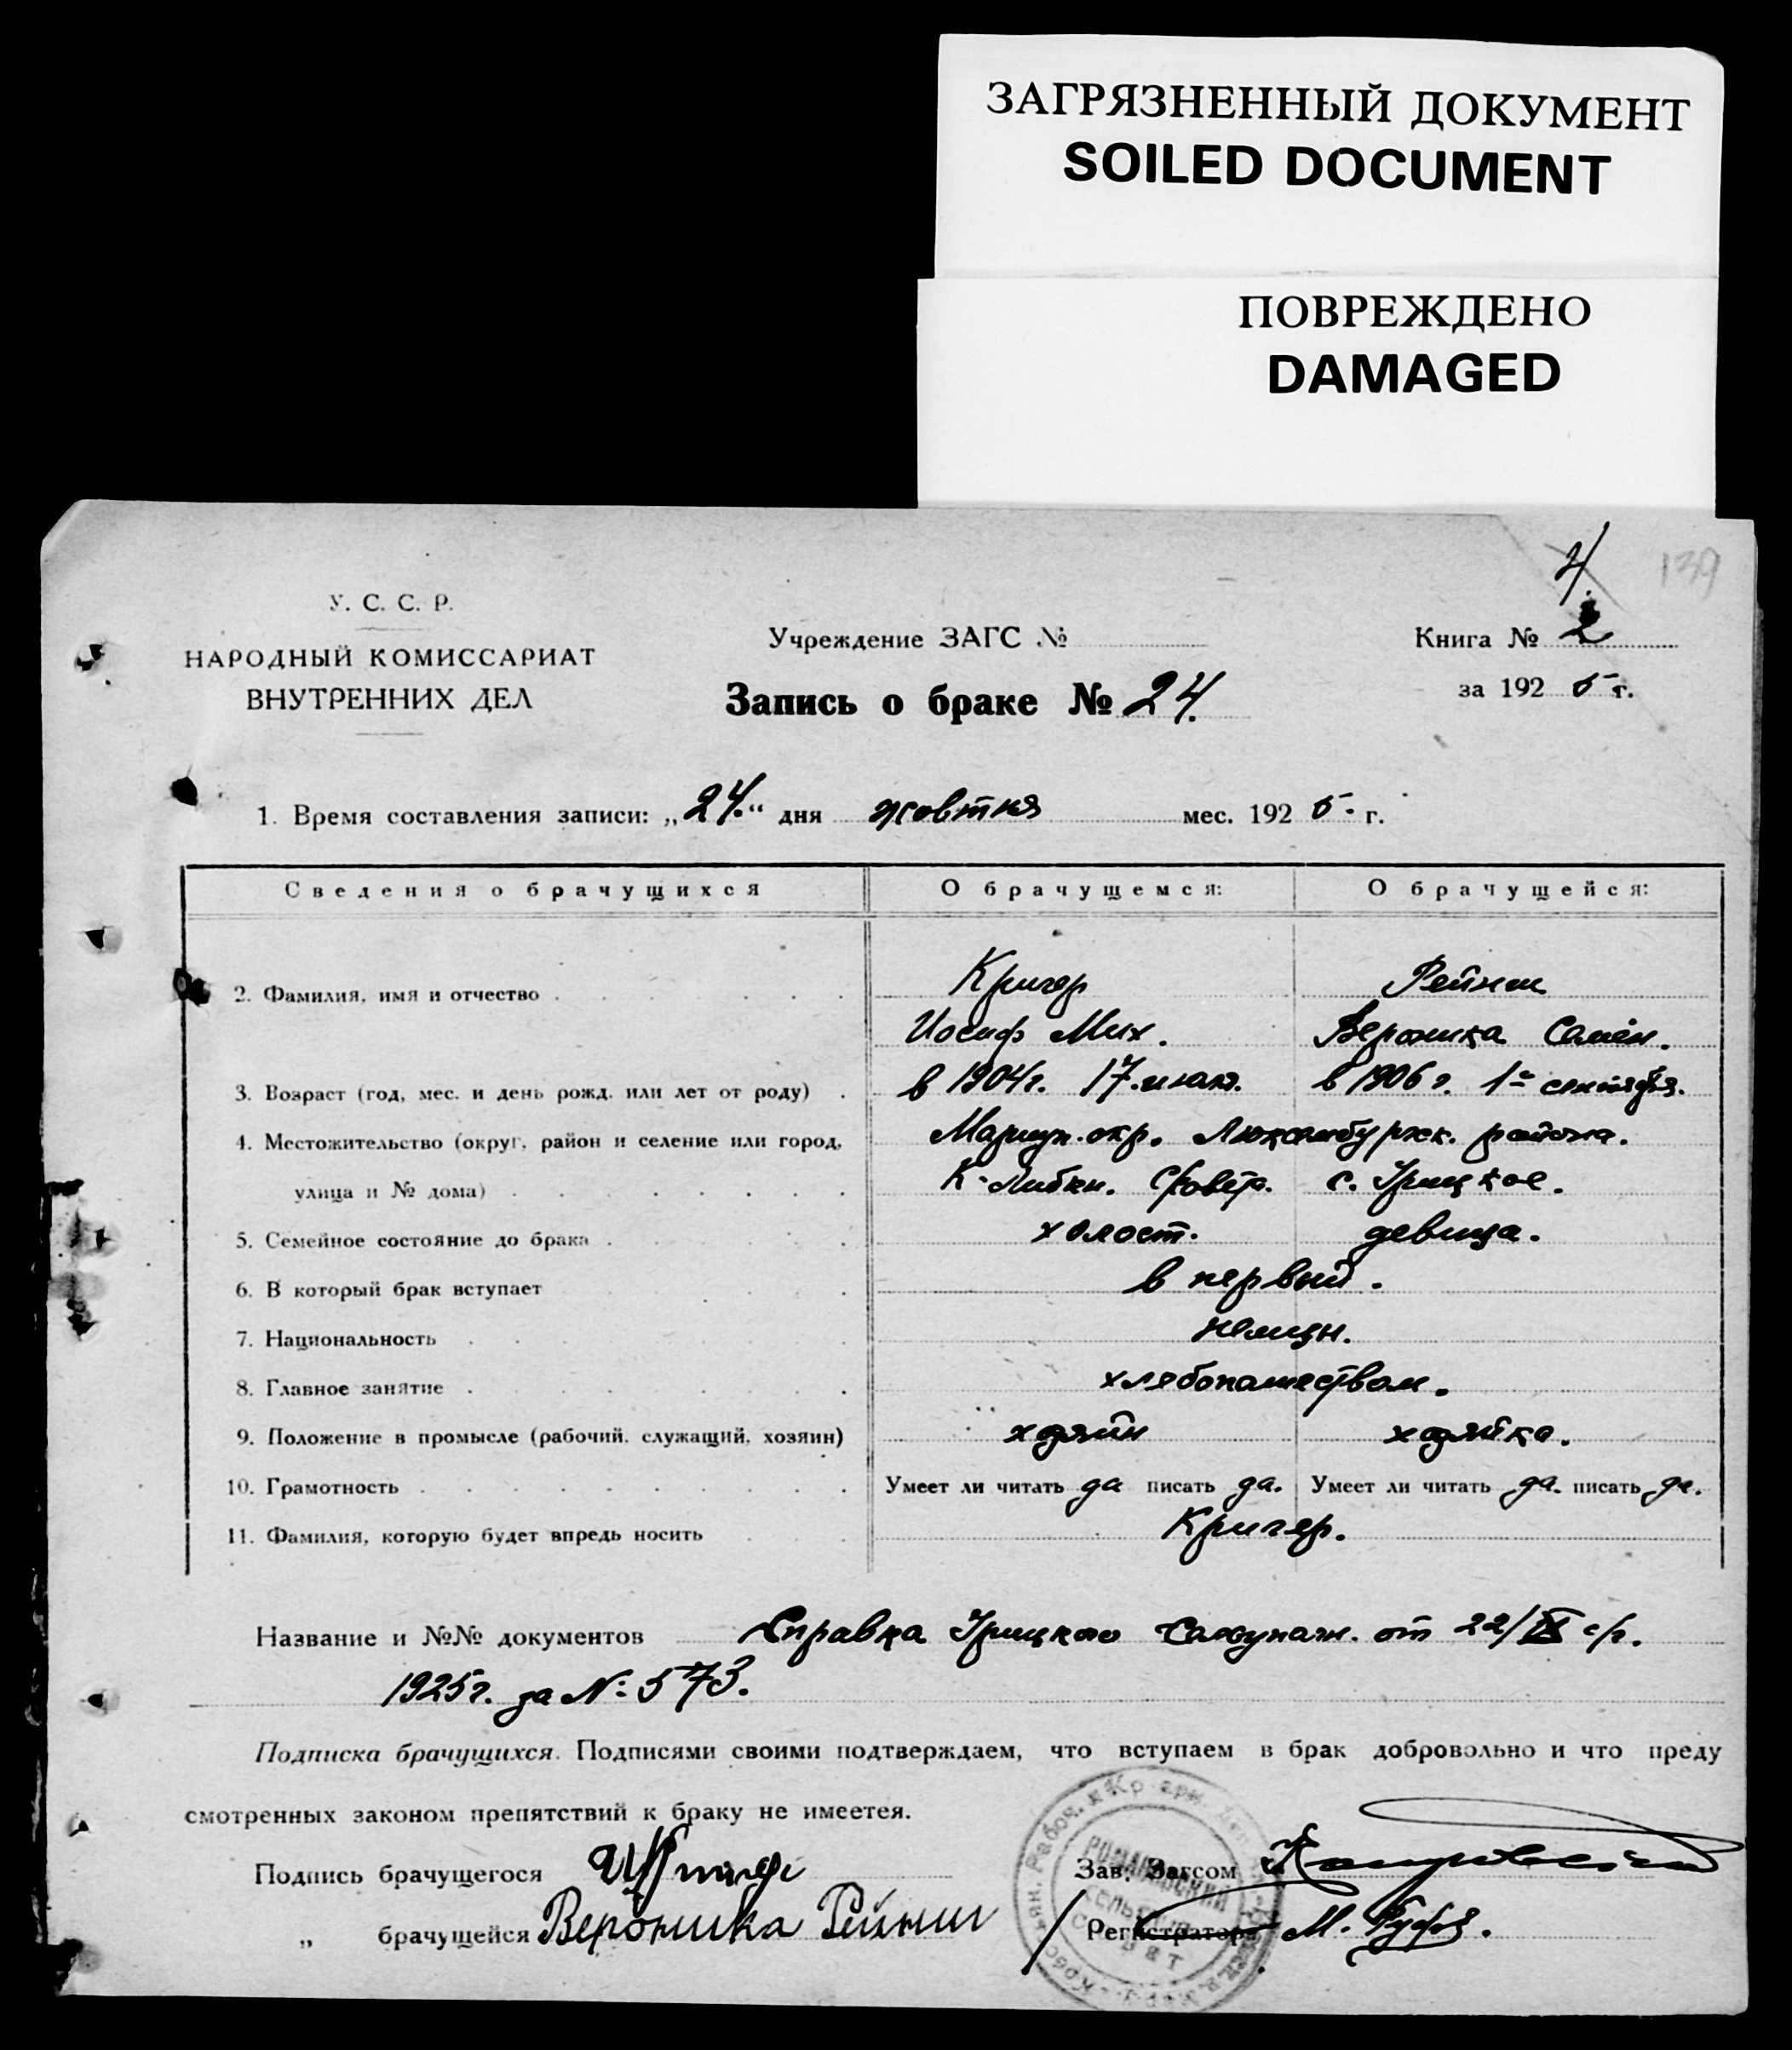 ЗАГРЯЗНЕННЫЙ ДОКУМЕНТ
SOILED DOCUMENT
ПОВРЕЖДЕНО
DAMAGED
4.
139
У. С. С. Р.
НАРОДНЫЙ КОМИССАРИАТ
ВНУТРЕННИХ ДЕЛ
Учреждение ЗАГС №
Запись о браке № 24.
Книга № 2
за 1925 г.
1. Время составления записи: „24.“ дня жовтня мес. 1925. г.
Сведения о брачущихся О брачущемся: О брачущейся:
2. Фамилия, имя и отчество Кригер Рейниш
Иосиф Мих. Вероника Семен.
3. Возраст (год, мес. и день рожд. или лет от роду) в 1904 г. 17. июля. в 1906 г. 1го сентября.
4. Местожительство (округ, район и селение или город, Мариуп. окр. Люксембургск. района.
улица и № дома) К-Либкн. с. Урицкое.
5. Семейное состояние до брака холост. девица.
6. В который брак вступает в первый.
7. Национальность немцы.
8. Главное занятие хлебопашеством.
9. Положение в промысле (рабочий, служащий, хозяин) хозяин хозяйка.
10. Грамотность Умеет ли читать да писать да. Умеет ли читать да. писать да.
11. Фамилия, которую будет впредь носить Кригер.
Название и №№ документов Справка Урицкого от 22/IX с/г.
1925 г. за № 573.
Подписка брачущихся. Подписями своими подтверждаем, что вступаем в брак добровольно и что преду
смотренных законом препятствий к браку не имеетея.
Подпись брачущегося Зав. Загсом
„ брачущейся Вероника Рейниш Регистратора М.